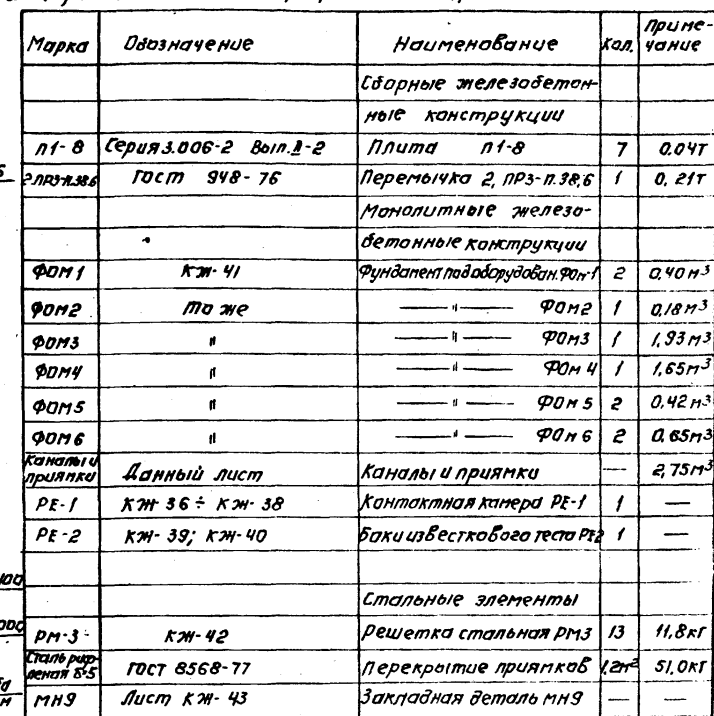 Марка Обозначение Наименование Кол. Приме-
чание
Сборные железобетон-
ные конструкции
П1-8 Серия 3.006-2 Вып. II-2 Плита П1-8 7 0.04т
2ПР3-П.38.6 ГОСТ 948-76 Перемычка 2, ПР3-П.38,6 1 0,21т
Монолитные железо-
бетонные конструкции
ФОМ1 КЖ-41 Фундамент под оборудован. ФОМ-1 2 0,40 м³
ФОМ2 То же —〃— ФОМ2 1 0,18 м³
ФОМ3 〃 —〃— ФОМ3 1 1,93 м³
ФОМ4 〃 —〃— ФОМ 4 1 1,65 м³
ФОМ5 〃 —〃— ФОМ 5 2 0,42 м³
ФОМ6 〃 —〃— ФОМ 6 2 0,65 м³
Каналы и
приямки Данный лист Каналы и приямки — 2,75 м³
РЕ-1 КЖ 36 ÷ КЖ-38 Контактная камера РЕ-1 1 —
РЕ-2 КЖ-39; КЖ-40 Баки известкового теста РЕ2 1 —
Стальные элементы
РМ-3 КЖ-42 Решетка стальная РМ3 13 11,8кг
Сталь риф-
леная δ=5 ГОСТ 8568-77 Перекрытие приямков 1,2м² 51,0кг
МН9 Лист КЖ-43 Закладная деталь МН9 — —